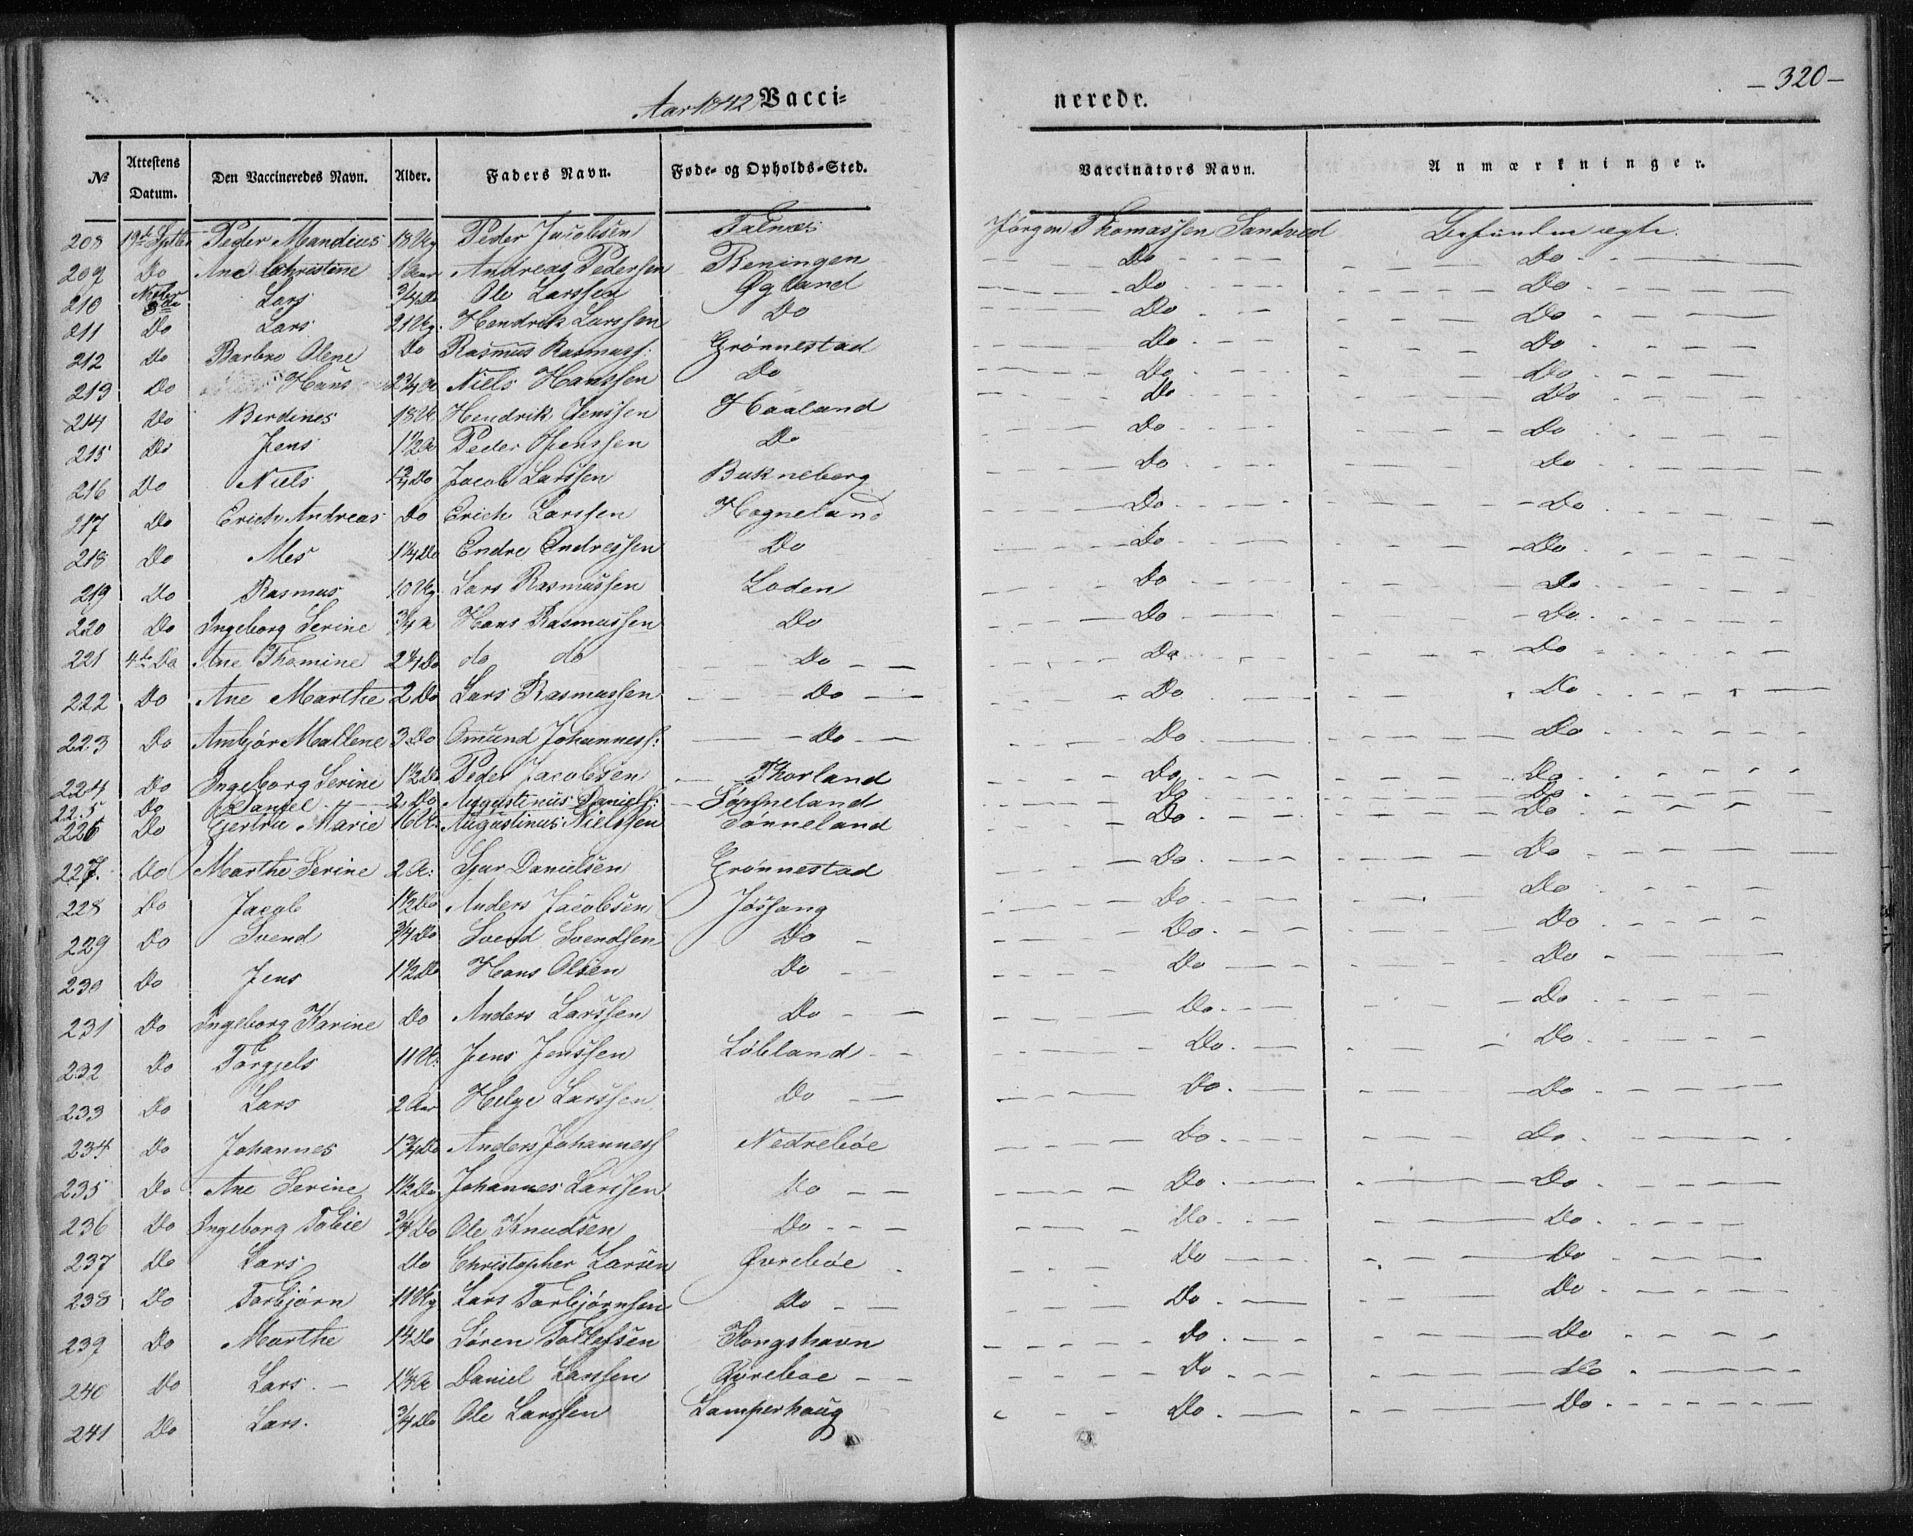 Aar 1842 Vacci-
neredr.
-320-
No Attestens Datum. Den Vaccineredes Navn. Alder. Faders Navn. Føde- og Opholds-Sted. Vaccinators Navn. Anmærkninger.
208 19de Septbr Peder Mandius 18 Ug Peder Jacobsen Talnæs Jørgen Thomassen Sandved Befunden ægte.
209 Do Ane Christine 1 Aar Andreas Pedersen Reningen Do Do
210 3die Lars 3/4 Do Ole Larssen Øgland Do Do
211 Do Lars 21 Ug. Hendrik Larssen Do Do Do
212 Do Barbro Olene Do Rasmus Rasmuss: Grønnestad Do Do
213 Do Hans 2 3/4 A Niels Hanssen Do Do Do
214 Do Berdines 18 U. Hendrik Jenssen Haaland Do Do
215 Do Jens 1 1/2 A Peder Jenssen Do Do Do
216 Do Niels 1 3/4 Do Jacob Larssen Bukneberg Do Do
217 Do Erich Andreas Do Erich Larssen Hogneland Do Do
218 Do 1 1/4 Do Endre Endressen Do Do Do
219 Do Rasmus 10 Ug Lars Rasmussen Loden Do Do
220 Do Ingeborg Serine 3/4 A Hans Rasmussen Do Do Do
221 4de Do Ane Thomine 2 1/4 Do do do Do Do Do
222 Do Ane Marthe 2 Do Lars Rasmussen Do Do Do
223 Do Anbjør Mallene 3 Do Omund Johanness: Do Do Do
224 Do Ingeborg Serine 1 1/2 Do Peder Jacobsen Thorland Do Do
225 Do Daniel 2 Do Augustinus Daniels: Tønneland Do Do
226 Do Gjertru Marie 16 U. Augustinus Nielssen Tønneland Do Do
227. Do Marthe Serine 2 A: Sjur Danielsen Grønnestad Do Do
228 Do Jacob 1 1/2 Do Anders Jacobsen Jøssang Do Do
229 Do Svend 3/4 Do Svend Svendsen Do Do Do
230 Do Jens 1 1/2 Do Hans Olsen Do Do Do
231 Do Ingeborg Karine Do Anders Larssen Do Do Do
232 Do Torgjels 11 U. Jens Jenssen Løbland Do Do
233 Do Lars 2 Aar Helge Larssen Do Do Do
234 Do Johannes 1 3/4 Do Anders Johanness Nedrebøe Do Do
235 Do Ane Serine 1 1/2 Do Johannes Larssen Do Do Do
236 Do Ingeborg Tobie 3/4 Do Ole Knudsen Do Do Do
237 Do Lars Do Christopher Larsen Øvrebøe Do Do
238 Do Torbjørn 11 Ug Lars Torbjørnsen Do Do Do
239 Do Marthe 14 Do Søren Tollefsen Kongshavn Do Do
240 Do Lars. 1 1/4 A Daniel Larssen Øvreboe Do Do
241 Do Lars. 3/4 Do Ole Larssen Lamperhaug Do Do